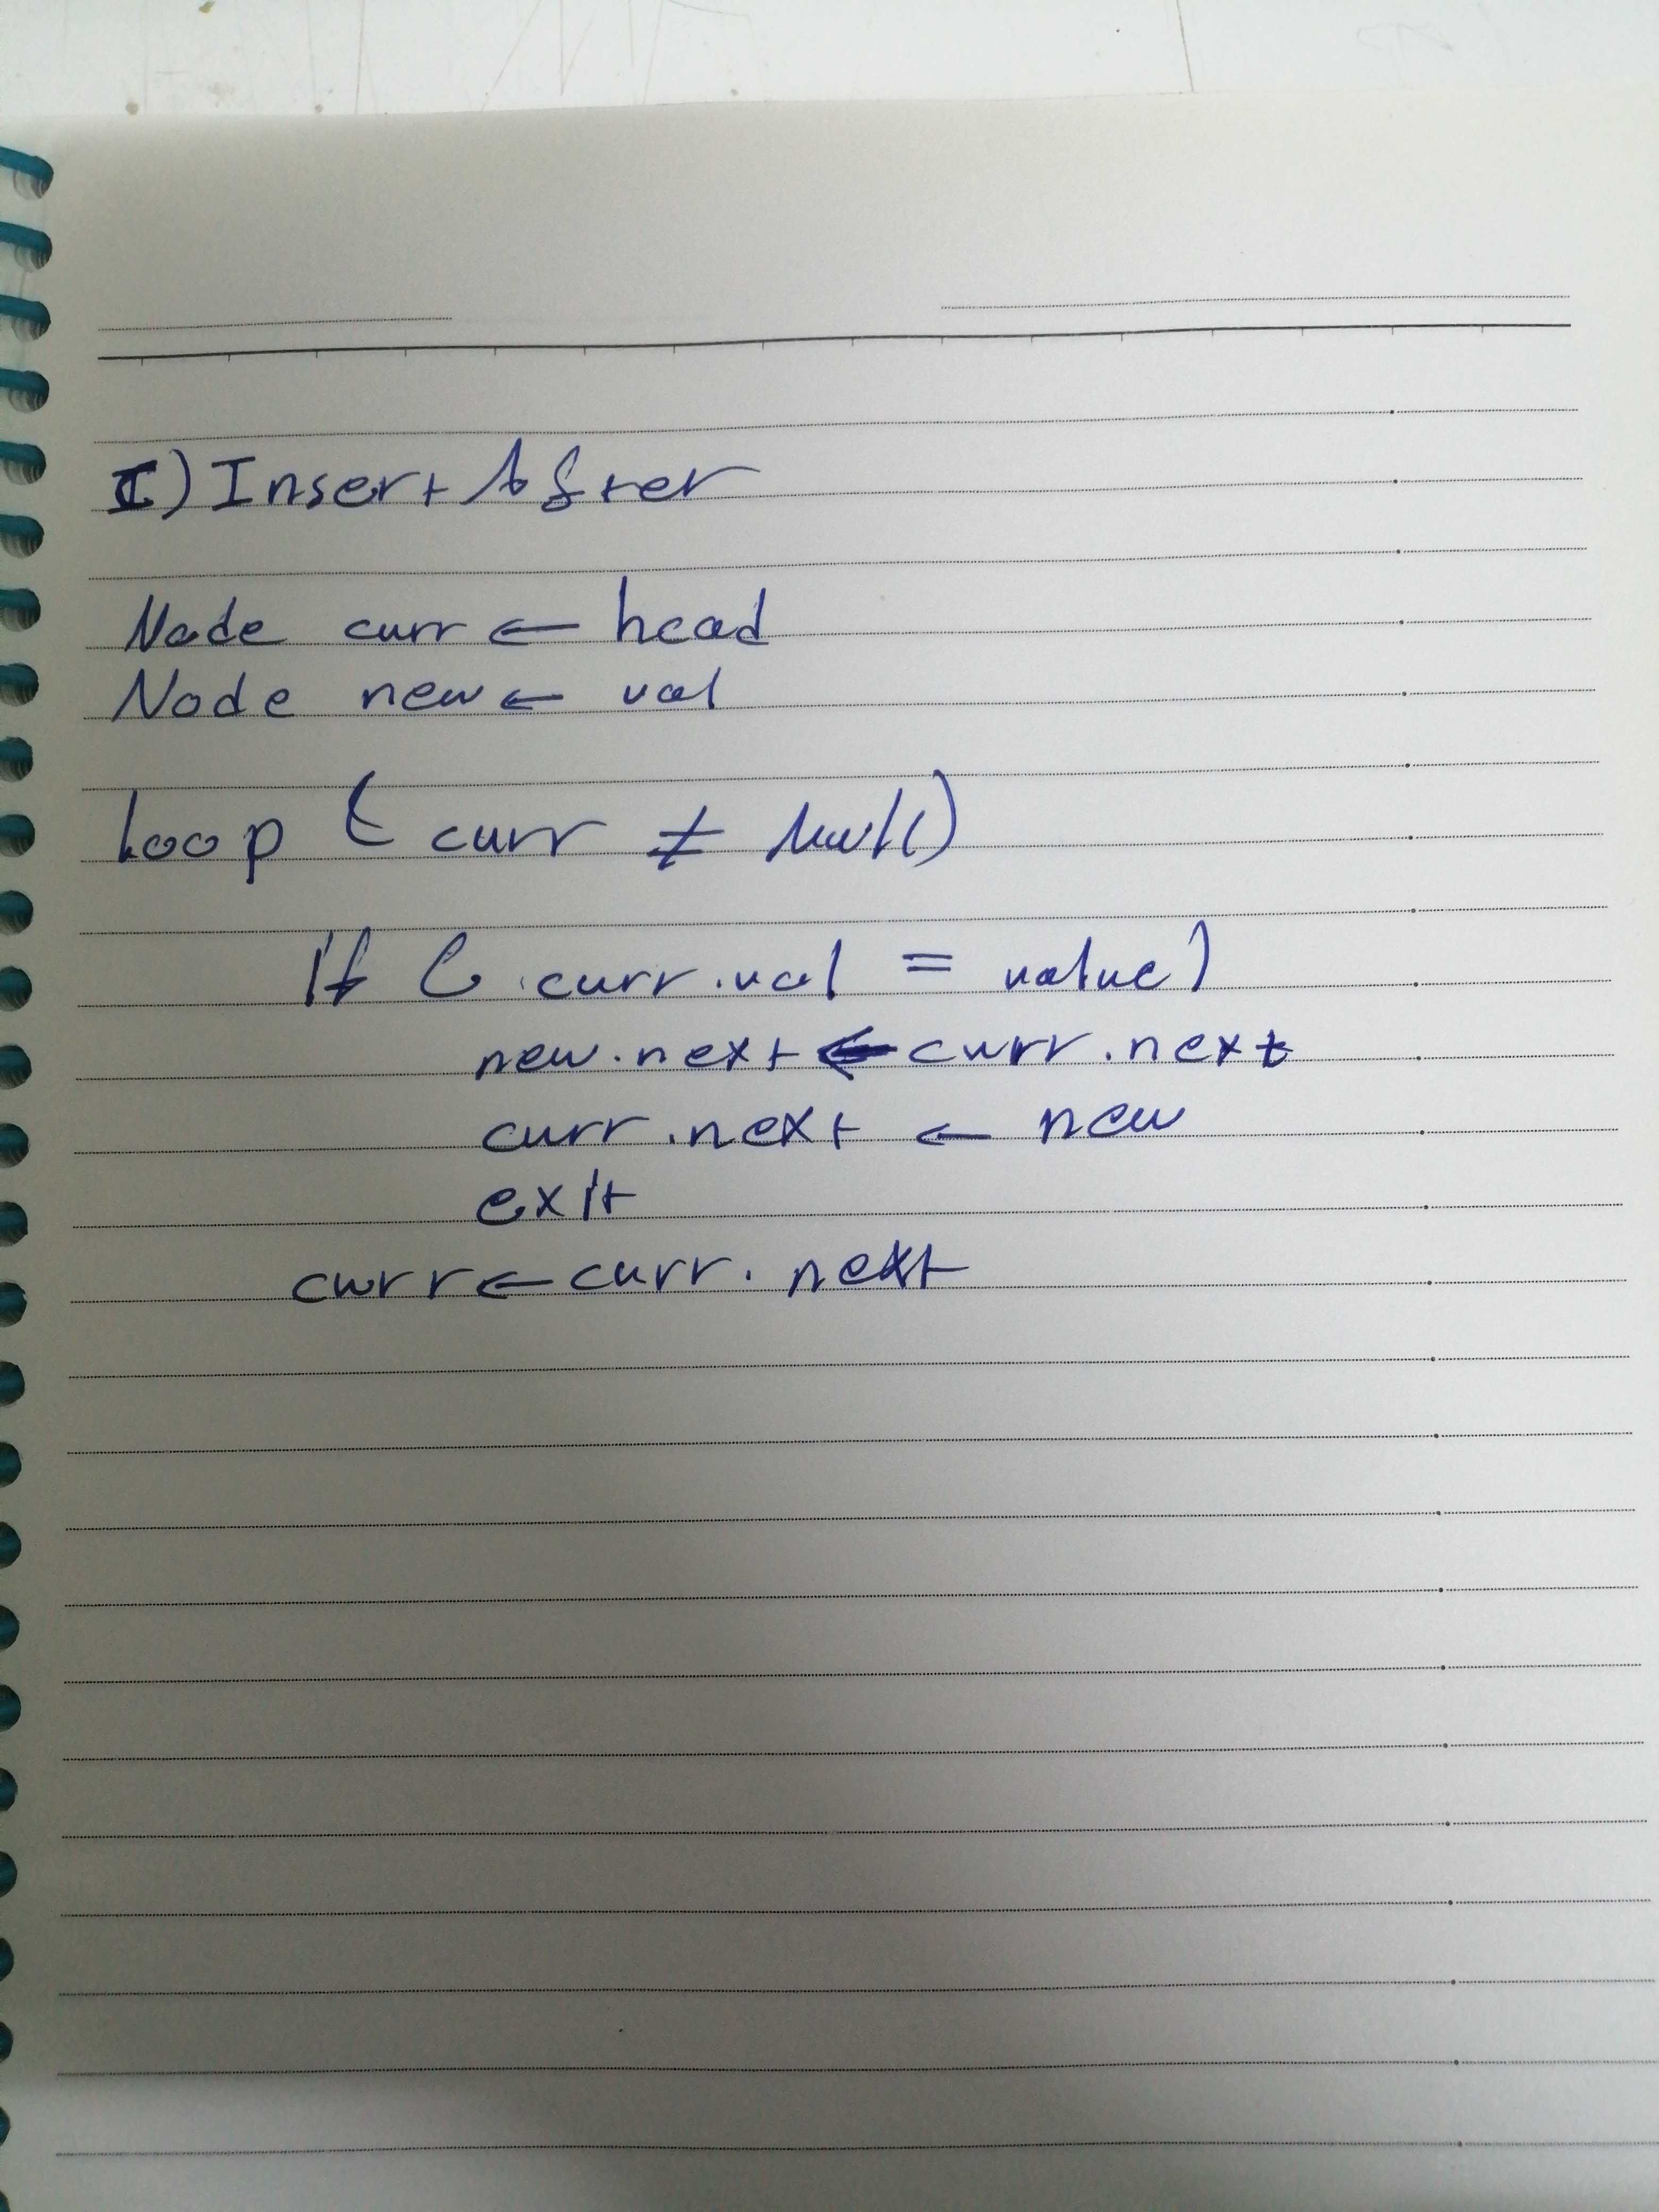 I) Insert After
Node curr ← head
Node new ← val
Loop ( curr ≠ Null)
If ( curr.val = value)
new.next ← curr.next
curr.next ← new
exit
curr ← curr.next